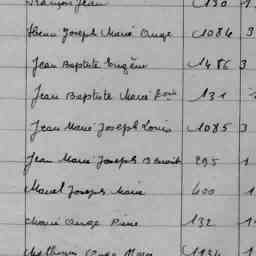 François Jean 130
Joseph Marie Ange 1084 3
Jean Baptiste Eugène 1486 3
Jean Baptiste Marie 131
Jean Marie Joseph Louis 1085 3
Jean Marie Joseph Benoit 295 1
Marcel Joseph Marie 400 1
Marie Ange Pierre 132 1
Mathurin Ange Marie 1934 1